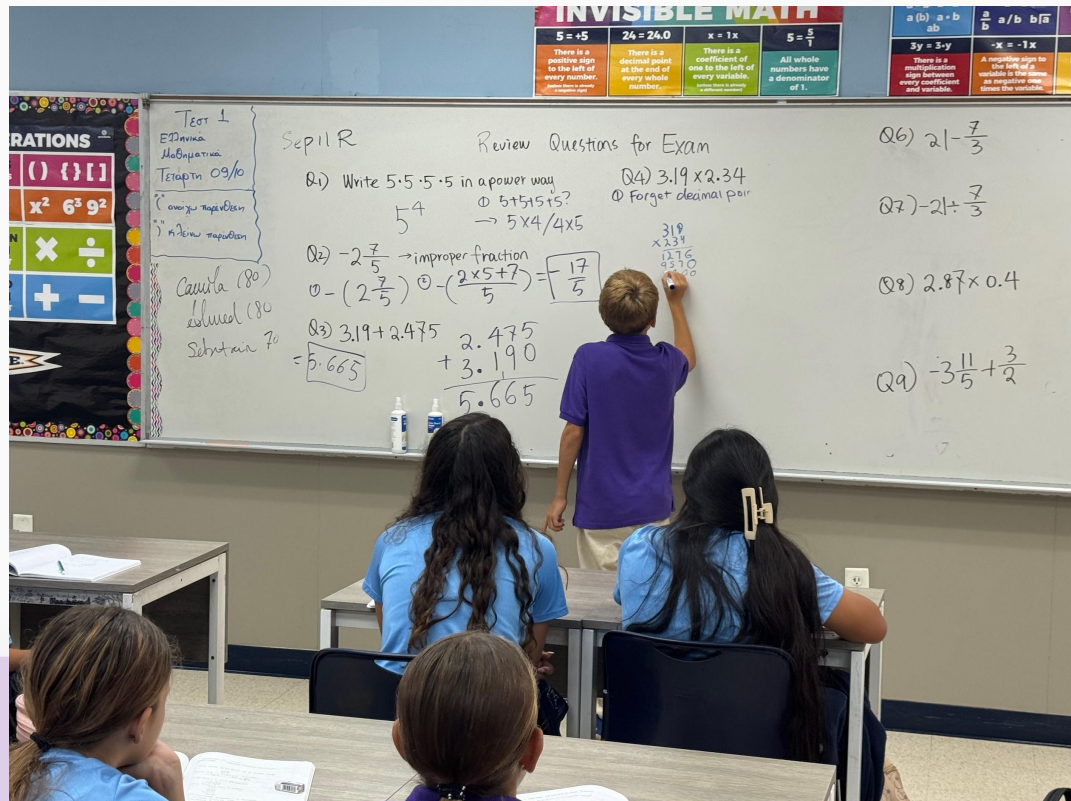 INVISIBLE MATH
5 = +5
24 = 24.0
x = 1x
5 = 5/1
There is a positive sign to the left of every number.
There is a decimal point at the end of every whole number.
There is a coefficient of one to the left of every variable.
All whole numbers have a denominator of 1.
a (b) a • b
ab
a/b a/b b⟌a
3y = 3•y
-x = -1x
There is a multiplication sign between every coefficient and variable.
A negative sign to the left of a variable is the same as negative one times the variable.
ERATIONS
( ) { } [ ]
x² 6³ 9²
× ÷
+ −
Τεστ 1
Ελληνικά
Μαθηματικά
Τετάρτη 09/10
"(" ανοίγω παρένθεση
")" κλείνω παρένθεση
Camila (80)
(80
70
Sep 11 R
Review Questions for Exam
Q1) Write 5·5·5·5 in a power way
5⁴
① 5+5+5+5?
→ 5×4/4×5
Q2) -2 7/5 → improper fraction
① -(2 7/5) ② -(2×5+7/5) = -17/5
Q3) 3.19 + 2.475
= 5.665
2.475
+ 3.190
5.665
Q4) 3.19 × 2.34
① Forget decimal
318
×234
1276
9570
Q6) 21 - 7/3
Q7) -21 ÷ 7/3
Q8) 2.87 × 0.4
Q9) -3 11/5 + 3/2